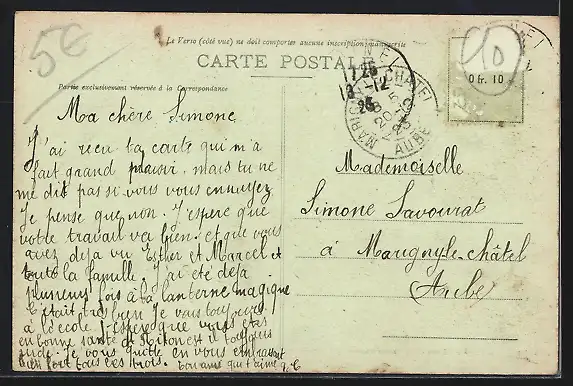 5€
Le Verso (côté vue) ne doit comporter aucune inscription manuscrite
CARTE POSTALE
Partie exclusivement réservée à la Correspondance
MARIGNY-LE-CHATEL
AUBE
0 fr. 10
Ma chère Simone
J'ai recu ta carte qui m'a
fait grand plaisir, mais tu ne
me dit pas si vous vous ennuyez.
Je pense que non. J'espere que
votre travail va bien et que vous
avez déja vu Ester et Marcel et
toute la famille. J'ai été déja
plusieurs fois à la lanterne magique
C'était très bien Je vais toujours
à l'école. J'espère que vous etes
en bonne santé
Je vous quitte en vous embrassant
bien fort tous les trois. qui t'aime
Mademoiselle
Simone Savourat
à Marigny-le-châtel
Aube